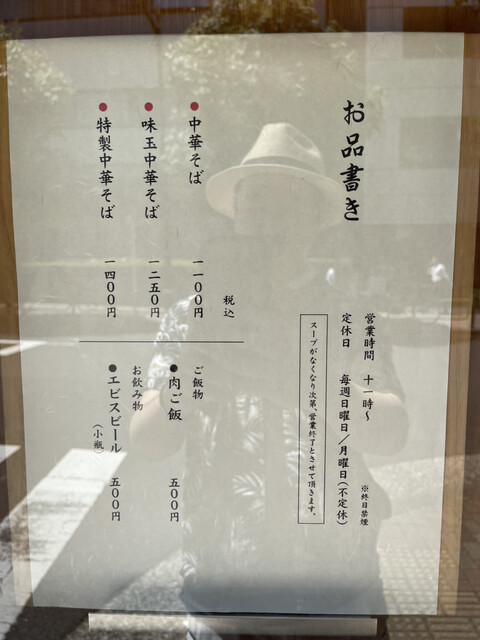 お品書き
営業時間 十一時～
※終日禁煙
定休日 毎週日曜日／月曜日(不定休)
スープがなくなり次第、営業終了とさせて頂きます。
税込
●中華そば 一一00円
●味玉中華そば 一二五0円
●特製中華そば 一四00円
ご飯物
●肉ご飯 五00円
お飲み物
●エビスビール(小瓶) 五00円